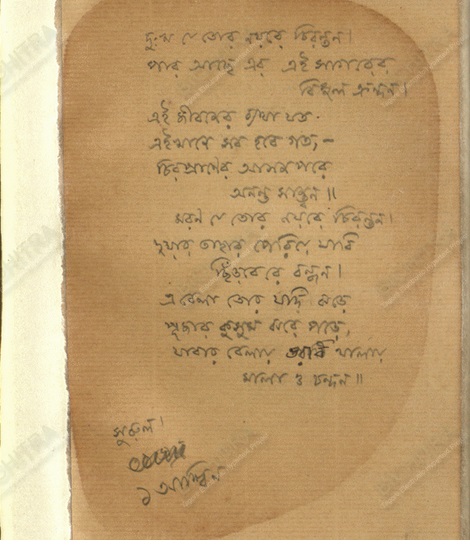 দুঃখ যে তোর নয়রে চিরন্তন।
পার আছে এর এই সাগরের
বিপুল ক্রন্দন।
এই জীবনের ব্যথা যত
এইখানে সব হবে গত,—
চিরপ্রাণের পরে
অনন্ত সান্ত্বন॥
মরণ যে তোর নয়রে চিরন্তন।
দুয়ার তাহার পেরিয়ে যাবি
ছিঁড়বে রে বন্ধন।
এ বেলা তোর যদি ঝড়ে
পূজার কুসুম ঝরে পড়ে,
যাবার বেলায় ভরবে থালায়
মালা ও চন্দন॥
সুরুল।
১ আশ্বিন